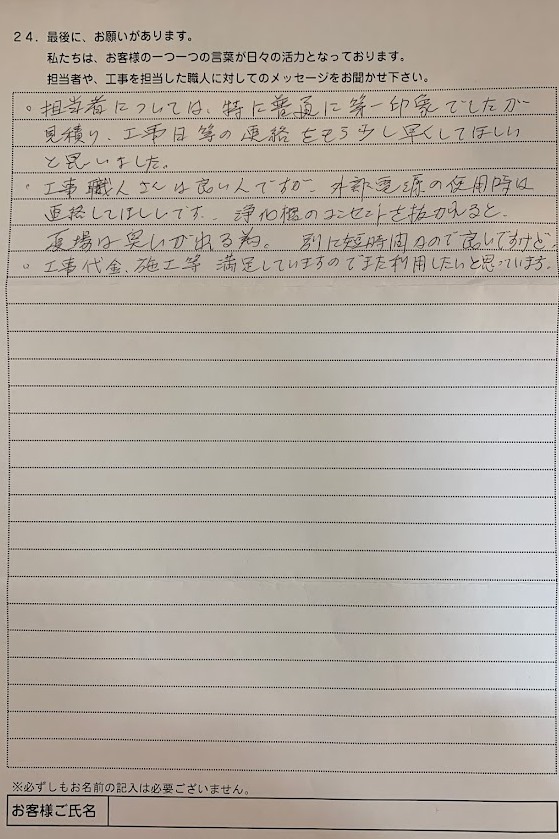 24. 最後に、お願いがあります。
私たちは、お客様の一つ一つの言葉が日々の活力となっております。
担当者や、工事を担当した職人に対してのメッセージをお聞かせ下さい。
。担当者については、特に普通に第一印象でしたが
見積り、工事日等の連絡をもう少し早くしてほしい
と思いました。
。工事職人さんは良いんですが、外部電源の使用時は
連絡してほしいです。浄化槽のコンセントを抜かれると、
夏場は臭いが出る為。別に短時間なので良いですけど
。工事代金、施工等 満足していますのでまた利用したいと思っています。
※必ずしもお名前の記入は必要ございません。
お客様ご氏名